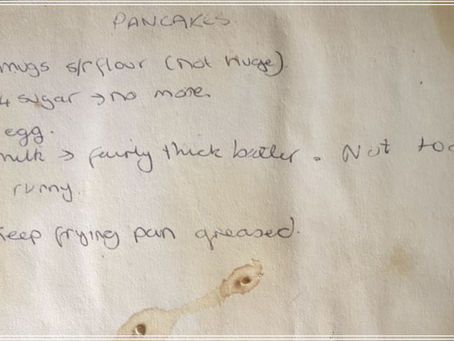 PANCAKES.
mugs s/r flour (not huge)
4 sugar → no more.
egg.
milk > fairly thick batter. Not too
runny.
Keep frying pan greased.